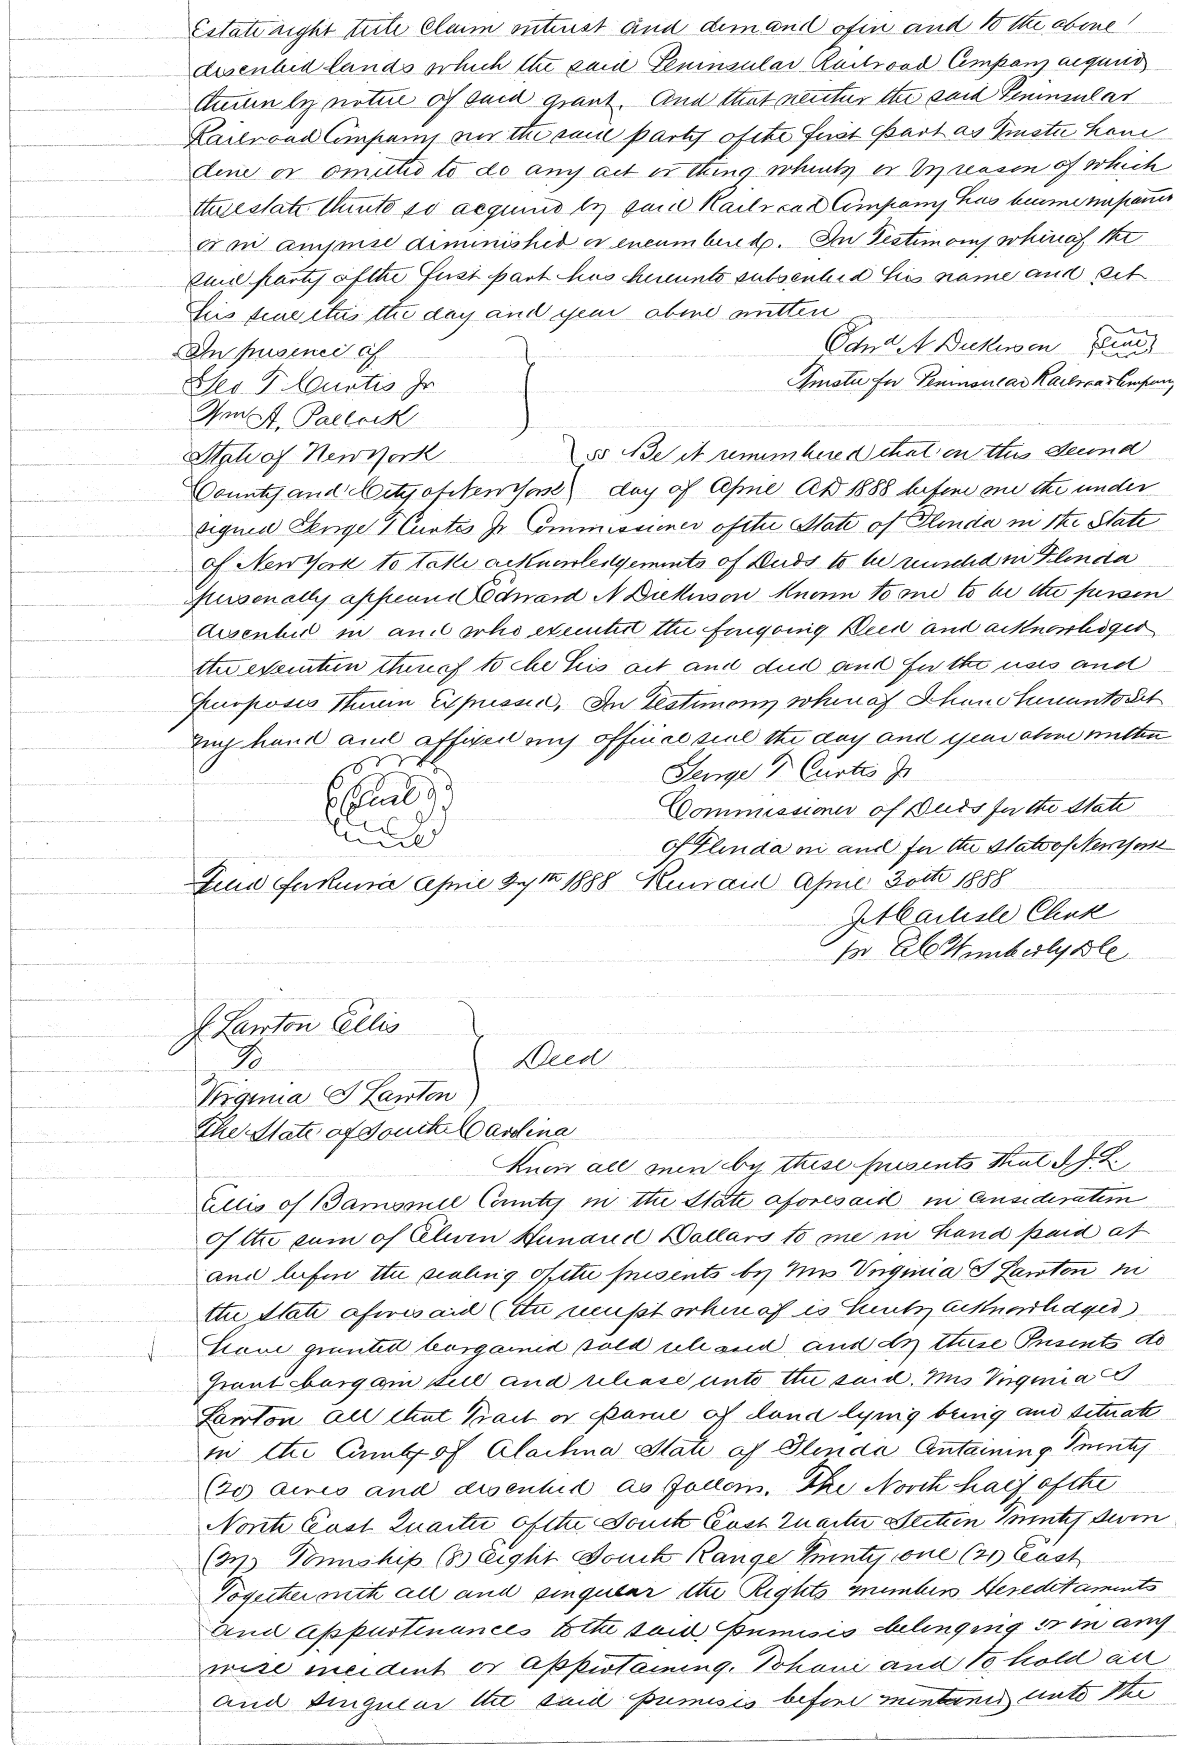 Estate right title Claim interest and demand of in and to the above
described lands which the said Peninsular Railroad Company acquired
therein by virtue of said grant. And that neither the said Peninsular
Railroad Company nor the said party of the first part as Trustee have
done or omitted to do any act or thing whereby or by reason of which
the estate thereto so acquired by said Railroad Company has become impaired
or in anywise diminished or encumbered. In Testimony whereof the
said party of the first part has hereunto subscribed his name and set
his seal this the day and year above written
In presence of
Edwd N Dickerson (Seal)
Geo T Curtis Jr
Trustee for Peninsular Railroad Company
Wm A. Pollock
State of New York } ss Be it remembered that on this Second
County and City of New York } day of April AD 1888 before me the under
signed George T Curtis Jr Commissioner of the State of Florida in the State
of New York to take acknowledgements of Deeds to be recorded in Florida
personally appeared Edward N Dickerson known to me to be the person
described in and who executed the foregoing Deed and acknowledged
the execution thereof to be his act and deed and for the uses and
purposes therein Expressed. In Testimony whereof I have hereunto Set
my hand and affixed my official seal the day and year above written
George T Curtis Jr
Seal
Commissioner of Deeds for the State
of Florida in and for the State of New York
Filed for Record April 27th 1888 Recorded April 30th 1888
J A Carlisle Clerk
pr Wimberly D C
J. Lawton Ellis
To } Deed
Virginia S Lawton
The State of South Carolina
Know all men by these presents that I J. L.
Ellis of Barnwell County in the State aforesaid in Consideration
of the sum of Eleven Hundred Dollars to me in hand paid at
and before the sealing of the presents by Mrs Virginia S Lawton in
the State aforesaid (the receipt whereof is hereby acknowledged)
have granted bargained sold released and by these Presents do
Grant bargain sell and release unto the said. Mrs Virginia S
Lawton all that Tract or Parcel of land lying being and situate
in the County of Alachua State of Florida Containing Twenty
(20) acres and described as follows. The North half of the
North East Quarter of the South East Quarter Section Twenty seven
(27) Township (8) Eight South Range Twenty one (21) East
Together with all and singular the Rights members Hereditaments
and appurtenances to the said Premises belonging or in any
wise incident or appertaining. To have and to hold all
and singular the said premises before mentioned unto the